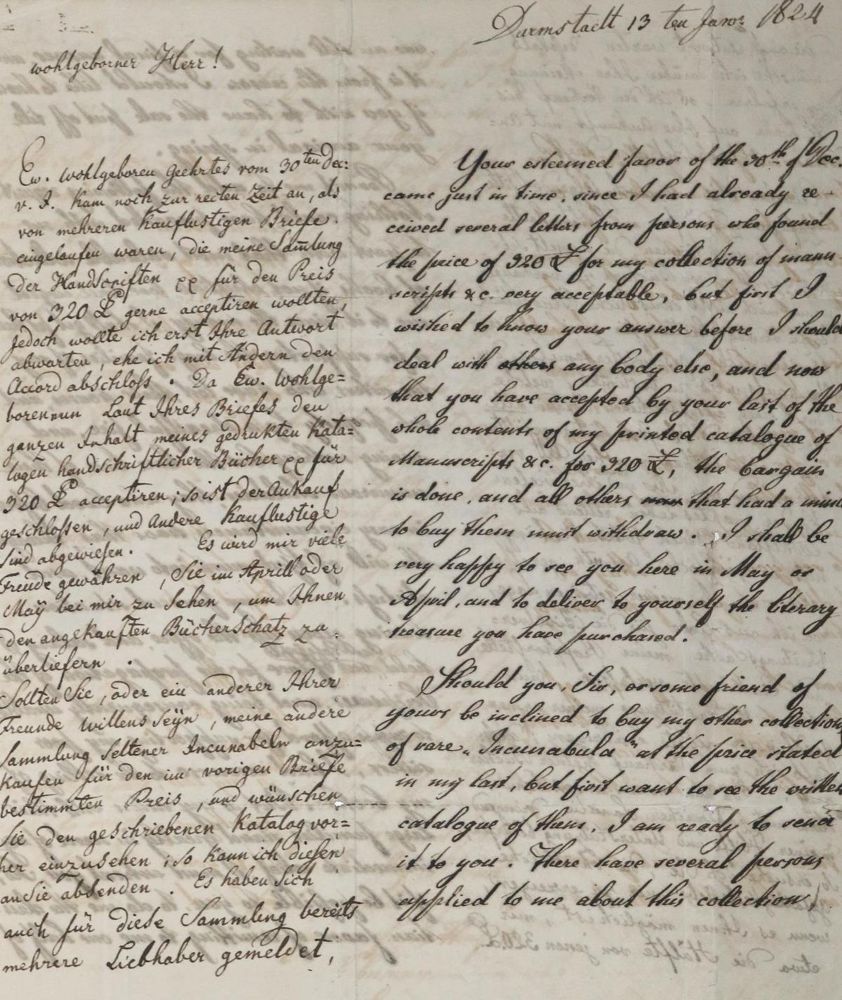 Darmstadt 13 ten Janr: 1824
wohlgeborner Herr!
Ew. wohlgeboren geehrtes vom 30ten Dec:
v. J. kam noch zur recten Zeit an, als
von mehreren Kauflustigen Briefe
eingelaufen waren, die meine Samlung
der Handscriften für den Preis
von 320 £ gerne acceptiren wollten,
jedoch wollte ich erst Ihre Antwort
abwarten, ehe ich mit Andern den
Accord abschloss. Da Ew. wohlge=
boren nun Laut Ihres Briefes den
ganzen Inhalt meines gedrukten Kata=
logen handschriftlicher Bücher für
320 £ acceptiren; so ist der Ankauf
geschlossen, und Andere Kauflustige
sind abgewiesen. Es wird mir viele
Freude gewähren, Sie im Aprill oder
Maÿ bei mir zu sehen, um Ihnen
den angekauften Bücherschatz zu
überliefern.
Sollten Sie, oder ein anderer Ihrer
Freunde willens seÿn, meine andere
Sammlung seltener Incunabeln anzu=
kaufen für den im vorigen Briefe
bestimmten Preis, und wünschen
Sie den geschriebenen Katalog vor=
her einzusehen; so kann ich diesen
an Sie absenden. Es haben sich
auch für diese Sammlung bereits
mehrere Liebhaber gemeldet,
Your esteemed favor of the 30th of Dec.
came just in time, since I had already re-
ceived several letters from persons who found
the price of 320 £ for my collection of manu
scripts &c. very acceptable, but first I
wished to know your answer before I should
deal with others any body else, and now
that you have accepted by your last of the
whole contents of my printed catalogue of
Manuscripts &c. for 320 £, the bargain
is done, and all others now that had a mind
to buy them must withdraw. I shall be
very happy to see you here in May or
April, and to deliver to yourself the literary
treasure you have purchased.
Should you, Sir, or some friend of
yours be inclined to buy my other collection
of rare „Incunabula" at the price stated
in my last, but first want to see the written
catalogue of them, I am ready to send
it to you. There have several persons
applied to me about this collection,